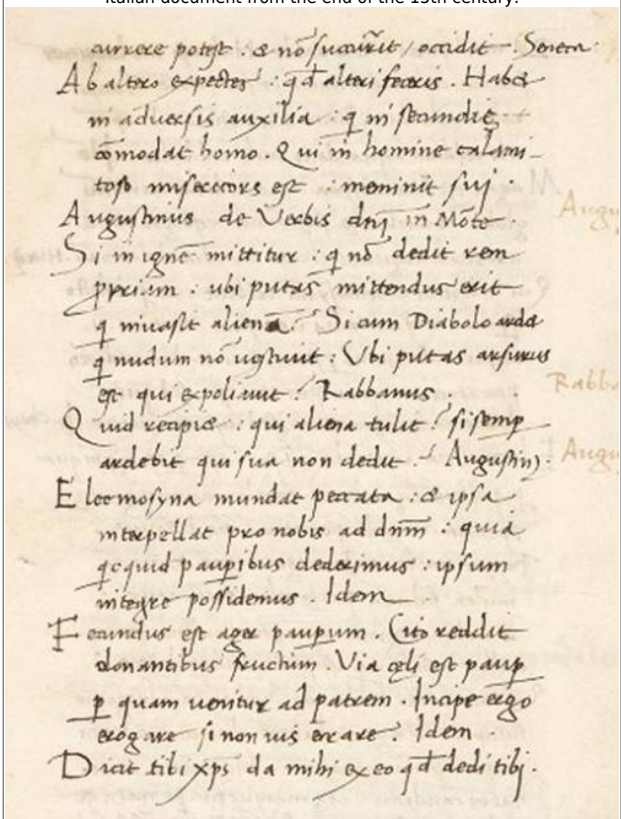 Italian document from the end of the 15th century.
currere potest . & nō succurrit / occidit . Seneca
Ab altero expectes : qd alteri feceris . Habet
in adversis auxilia : q in secundis
cōmodat homo . Qui in homine calami-
toso misericors est : meminit sui .
Augustinus de Verbis dnj in Mōte .
Si in ignē mittitur : q nō dedit rem
propriam : ubi putas mittendus erit
q invasit alienā ? Si cum Diabolo ardet
q nudum nō vestivit : Ubi putas arsurus
est qui expoliavit ? Rabbanus .
Quid recipiet : qui aliena tulit ? si semp
ardebit qui sua non dedit . Augustin) .
Eleemosyna mundat peccata : & ipsa
interpellat pro nobis ad dnm : quia
qcquid paupibus dederimus : ipsum
integre possidemus . Idem
Fecundus est ager paupum . Cito reddit
donantibus fructum . Via cęli est paup
p quam venitur ad patrem . Incipe ergo
erogare si non vis errare . Idem .
Dicit tibi xps da mihi ex eo qd dedi tibj .
Augu
Rabba
Augu